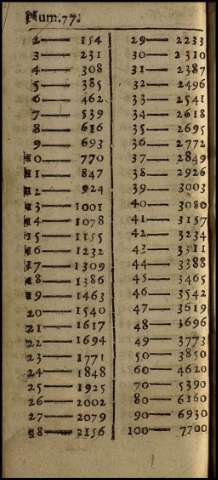 Num.77.
2— 154
3— 231
4— 308
5— 385
6— 462
7— 539
8— 616
9— 693
10— 770
11— 847
12— 924
13— 1001
14— 1078
15— 1155
16— 1232
17— 1309
18— 1386
19— 1463
20— 1540
21— 1617
22— 1694
23— 1771
24— 1848
25— 1925
26— 2002
27— 2079
28— 2156
29— 2233
30— 2310
31— 2387
32— 2496
33— 2541
34— 2618
35— 2695
36— 2772
37— 2849
38— 2926
39— 3003
40— 3080
41— 3157
42— 3234
43— 3311
44— 3388
45— 3465
46— 3542
47— 3619
48— 3696
49— 3773
50— 3850
60— 4620
70— 5390
80— 6160
90— 6930
100— 7700